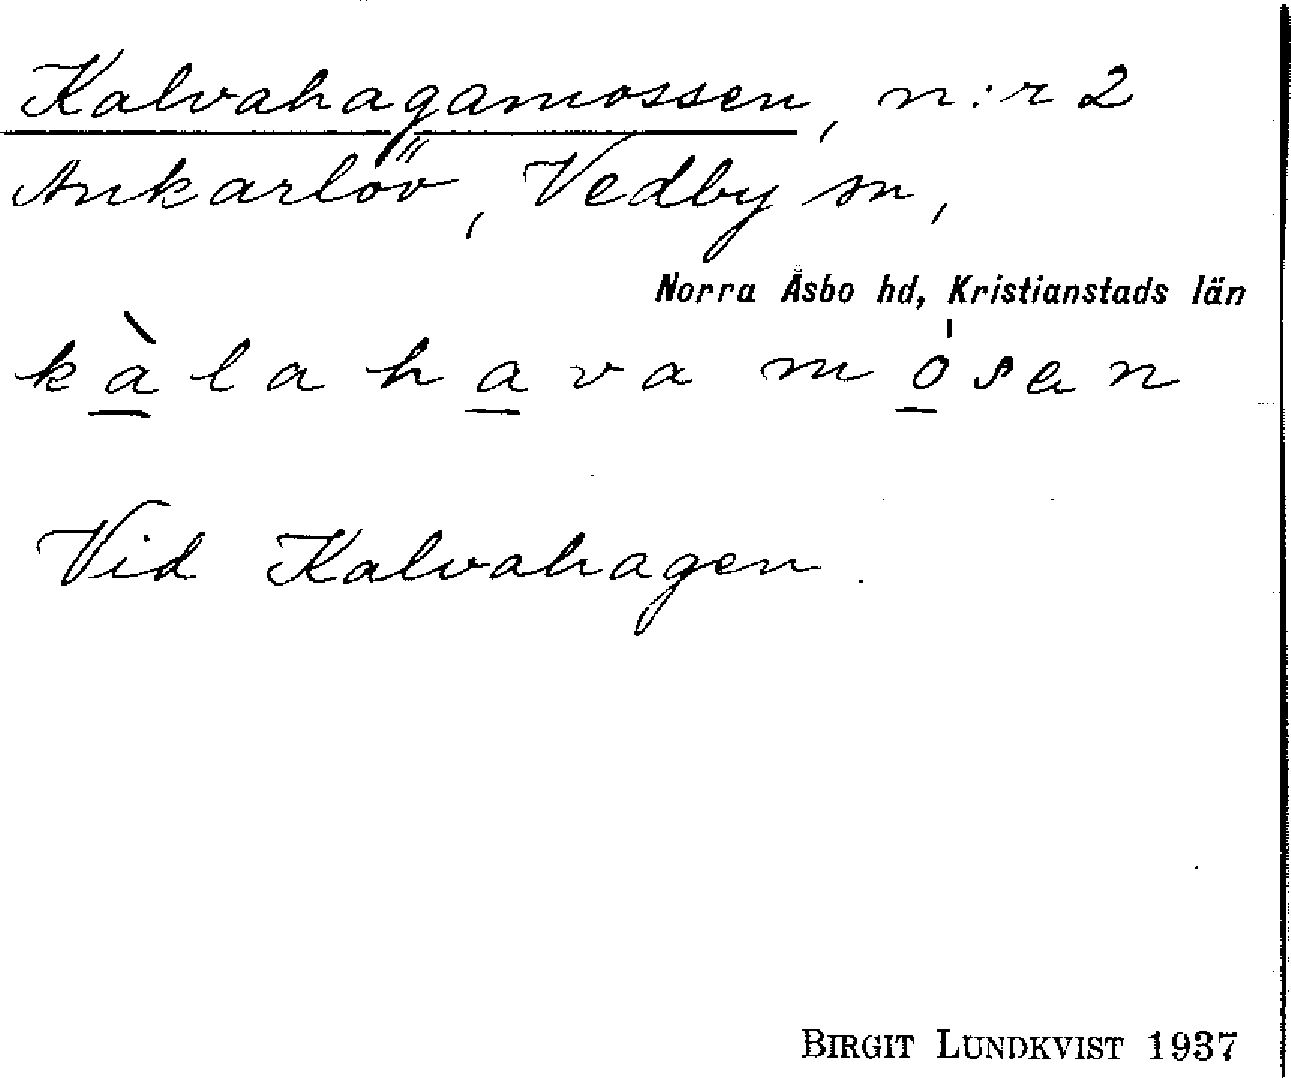 Kalvahagamossen, n:r 2
Ankarlöv, Vedby sn,
Norra Åsbo hd, Kristianstads län
kàla hava mósen
Vid Kalvahagen.
BIRGIT LUNDKVIST 1937